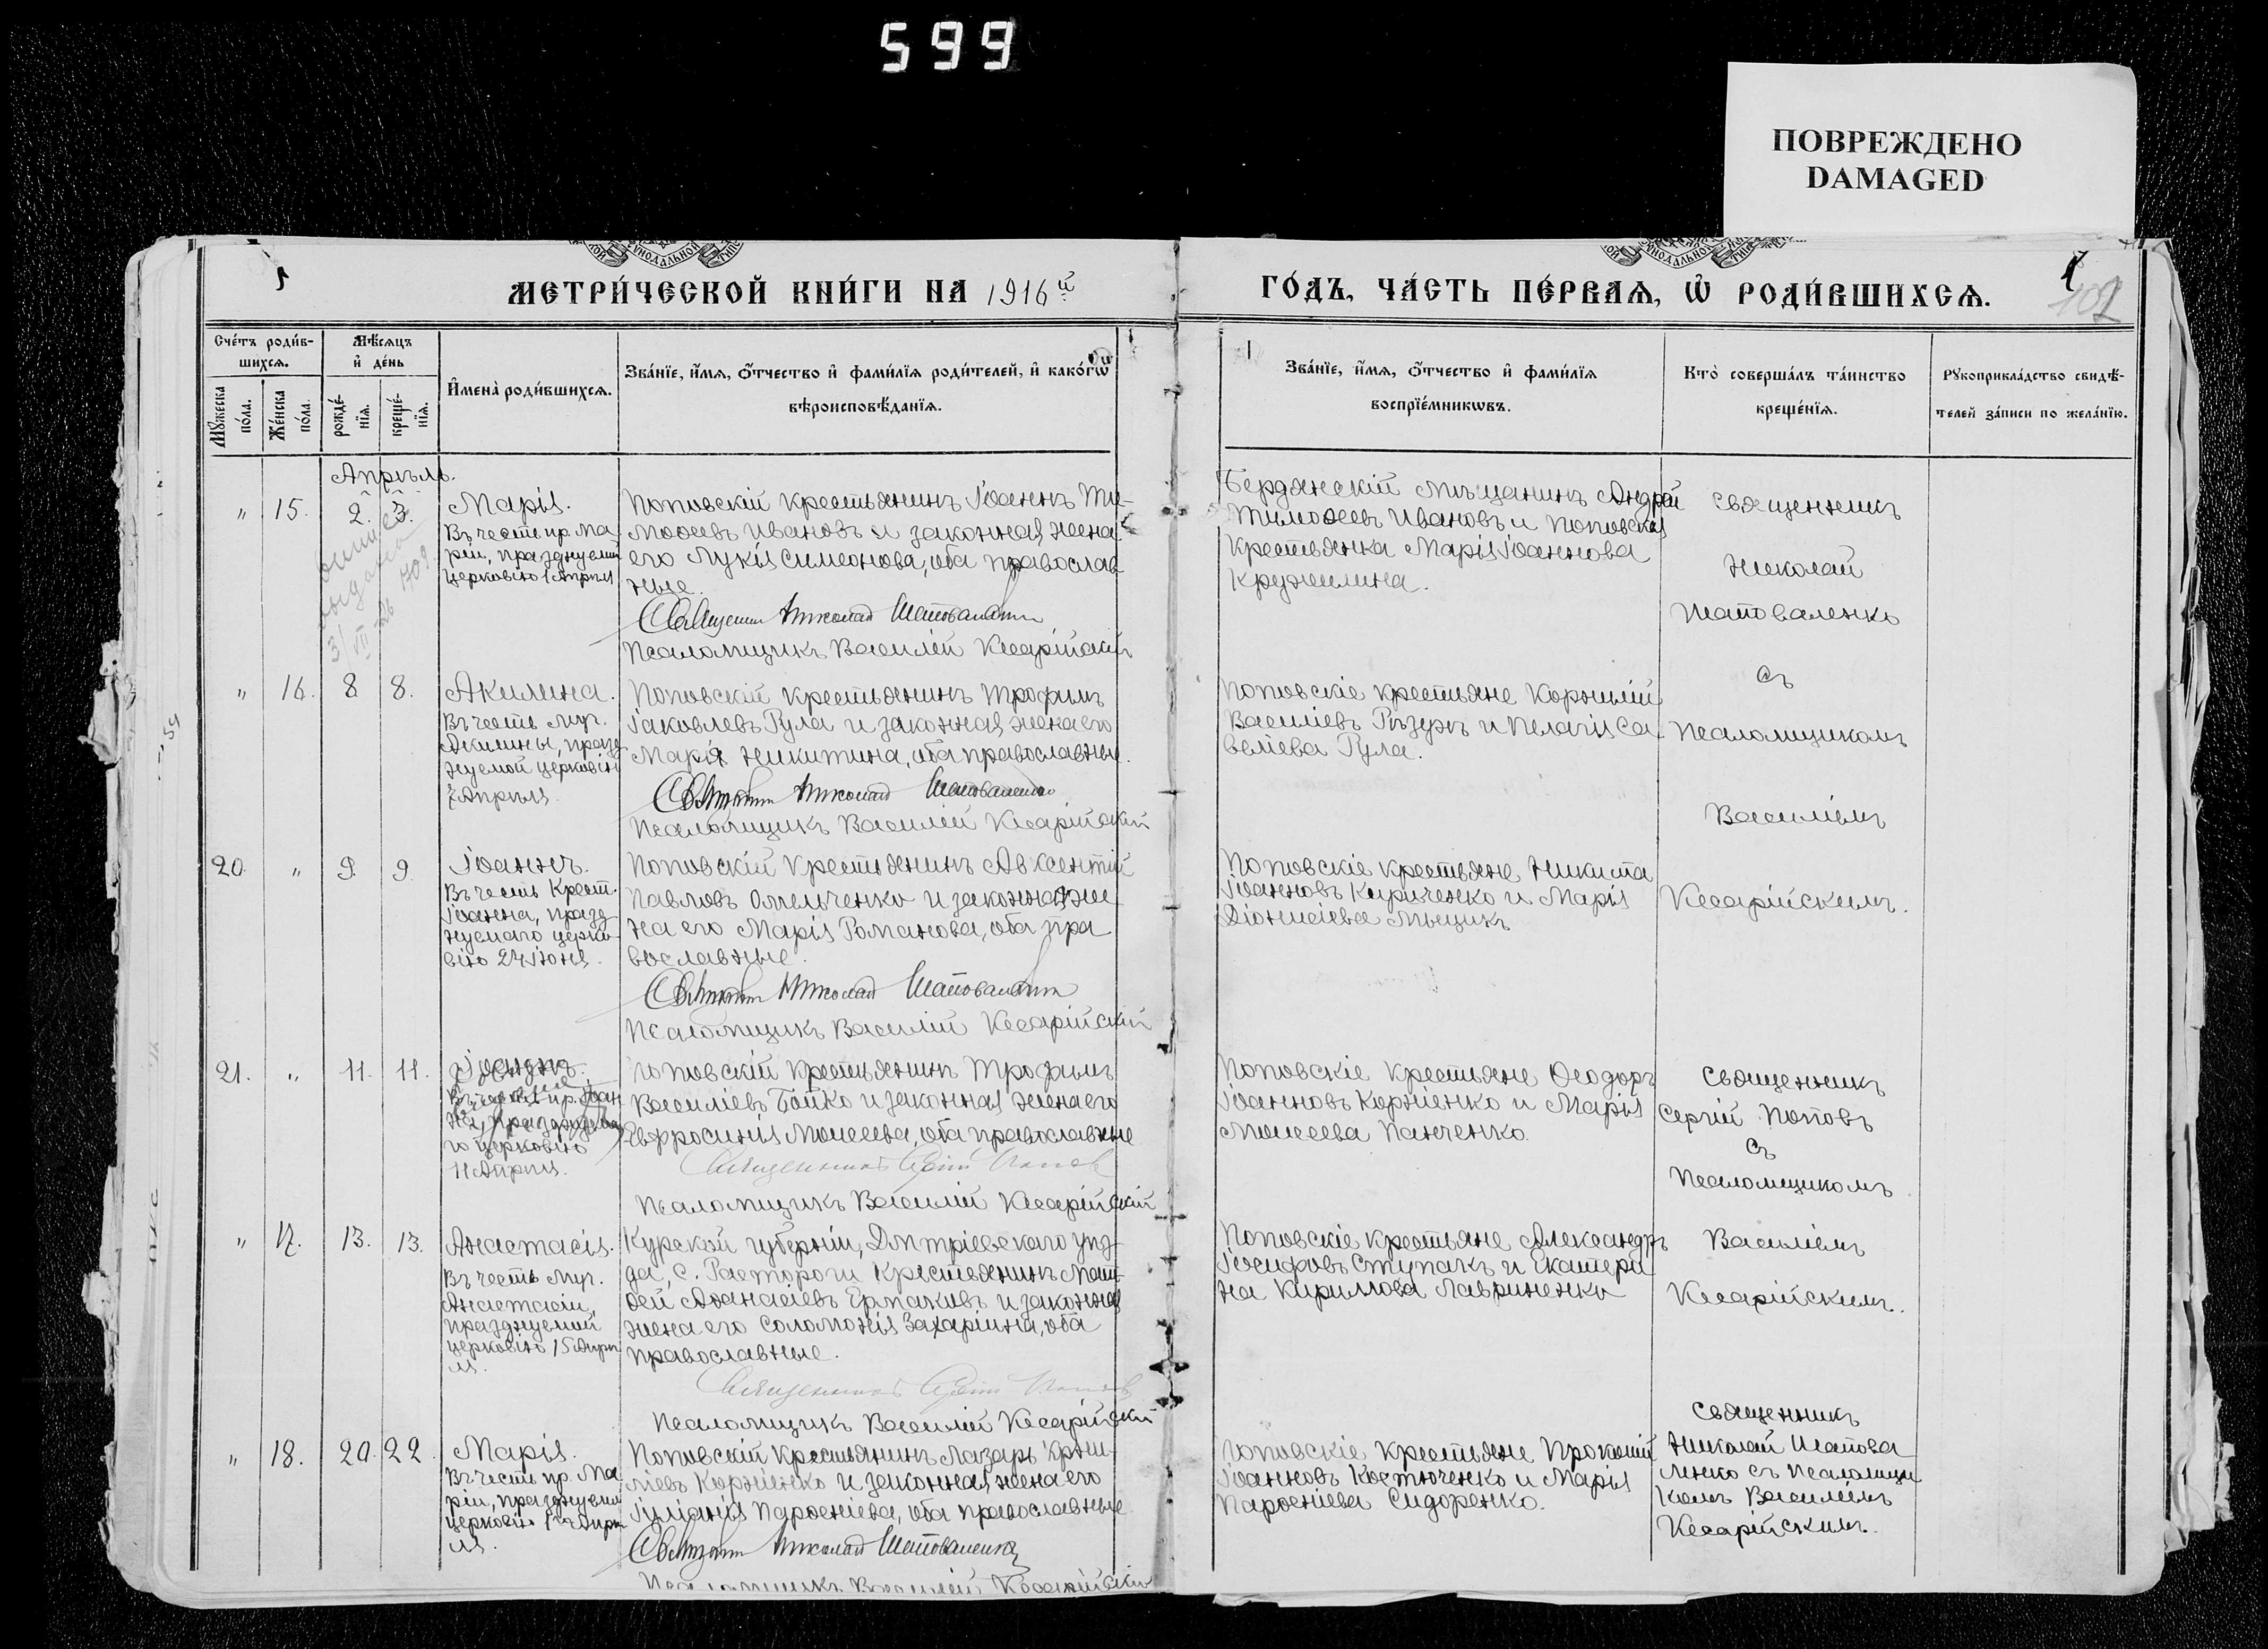 599
ПОВРЕЖДЕНО
DAMAGED
МЕТРИ́ЧЕСКОЙ КНИ́ГИ НА 1916й
ГО́ДЪ, ЧА́СТЬ ПЕ́РВАѦ, Ѡ РОДИ́ВШИХСѦ.
102
Сче́тъ роди́в-
шихсѧ.
Мѣ́сяцъ
и де́нь
Мꙋ́жеска
по́ла.
Же́нска
по́ла.
рожде́-
нїѧ.
креще́-
нїѧ.
Имена̀ роди́вшихсѧ.
Зва́нїе, и́мѧ, ѻ҆́тчество и фами́лїѧ роди́телей, и како́гѡ
вѣроисповѣ́данїѧ.
Зва́нїе, и́мѧ, ѻ҆́тчество и фами́лїѧ
воспрїе́мникѡвъ.
Кто̀ соверша́лъ та́инство
креще́нїѧ.
Рꙋкоприкла́дство свидѣ́-
телей за́писи по жела́нїю.
Апрѣль.
" 15. 2. 3.
Марія.
Въ честь пр. Ма
ріи, празднуемой
церковію 1 Апрѣля
Поповскій крестьянинъ Іоаннъ Ти-
моѳеевъ Ивановъ и законная жена
его Лукія Симеонова, оба православ
ные.
Священникъ Николай Шаповаленко
Псаломщикъ Василій Кесарійскій
Бердянскій мѣщанинъ Андрей
Тимоѳеевъ Ивановъ и Поповская
крестьянка Марія Іоаннова
Кружилина.
Священникъ
Николай
Шаповаленко
съ
Псаломщикомъ
Василіемъ
Кесарійскимъ.
" 16. 8. 8.
Акилина.
Въ честь муч.
Акилины, празд
нуемой церковію
7 Апрѣля
Поповскій крестьянинъ Трофимъ
Іаковлевъ Гула и законная жена его
Марія Никитина, оба православные.
Священникъ Николай Шаповаленко
Псаломщикъ Василій Кесарійскій
Поповскіе крестьяне Корнилій
Василіевъ Рѣзунъ и Пелагія Са
веліева Гула.
20. " 9. 9.
Іоаннъ.
Въ честь Крест.
Іоанна, празд
нуемаго церко
вію 24 Іюня.
Поповскій крестьянинъ Авксентій
Павловъ Омельченко и законная же
на его Марія Романова, оба пра
вославные.
Священникъ Николай Шаповаленко
Псаломщикъ Василій Кесарійскій
Поповскіе крестьяне Никита
Іоанновъ Кириченко и Марія
Діонисіева Мыцикъ
21. " 11. 11.
Іоаннъ.
11 Апрѣля.
Поповскій крестьянинъ Трофимъ
Василіевъ Бойко и законная жена его
Евфросинія Моисеева, оба православные
Священникъ Сергій Поповъ
Псаломщикъ Василій Кесарійскій
Поповскіе крестьяне Ѳеодоръ
Іоанновъ Корніенко и Марія
Моисеева Панченко.
Священникъ
Сергій Поповъ
съ
Псаломщикомъ
Василіемъ
Кесарійскимъ.
" 17. 13. 13.
Анастасія.
Въ честь муч.
Анастасіи,
празднуемой
церковію 15 Апрѣ
ля.
Курской губерніи, Дмитріевскаго уѣз
да, с. Расторогъ крестьянинъ Мат
ѳей Аѳанасіевъ Ермаковъ и законная
жена его Соломонія Захаріина, оба
православные.
Священникъ Сергій Поповъ
Псаломщикъ Василій Кесарійскій
Поповскіе крестьяне Александръ
Іосифовъ Ступакъ и Екатери
на Кириллова Лавриненко
" 18. 20. 22.
Марія.
Въ честь пр. Ма
ріи, празднуемой
церковію 1 Апрѣ
ля.
Поповскій крестьянинъ Лазарь
Корніенко и законная жена его
Іуліанія Парѳеніева, оба православные
Священникъ Николай Шаповаленко
Псаломщикъ Василій Кесарійскій
Поповскіе крестьяне Прокопій
Іоанновъ Костюченко и Марія
Парѳеніева Сидоренко.
Священникъ
Николай Шапова
ленко съ Псаломщи
комъ Василіемъ
Кесарійскимъ.